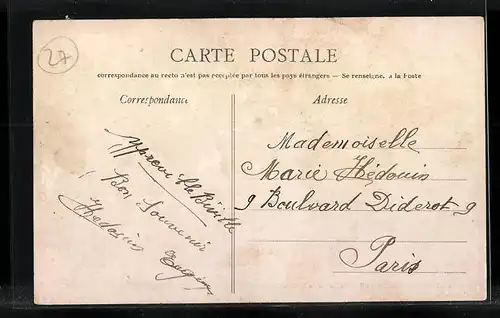 27
CARTE POSTALE
correspondance au recto n'est pas acceptée par tous les pays étrangers — Se renseigner à la Poste
Correspondance
Adresse
Ypreville Biville
Bon Souvenir
Hédouin
Mademoiselle
Marie Hédouin
9 Boulvard Diderot 9
Paris